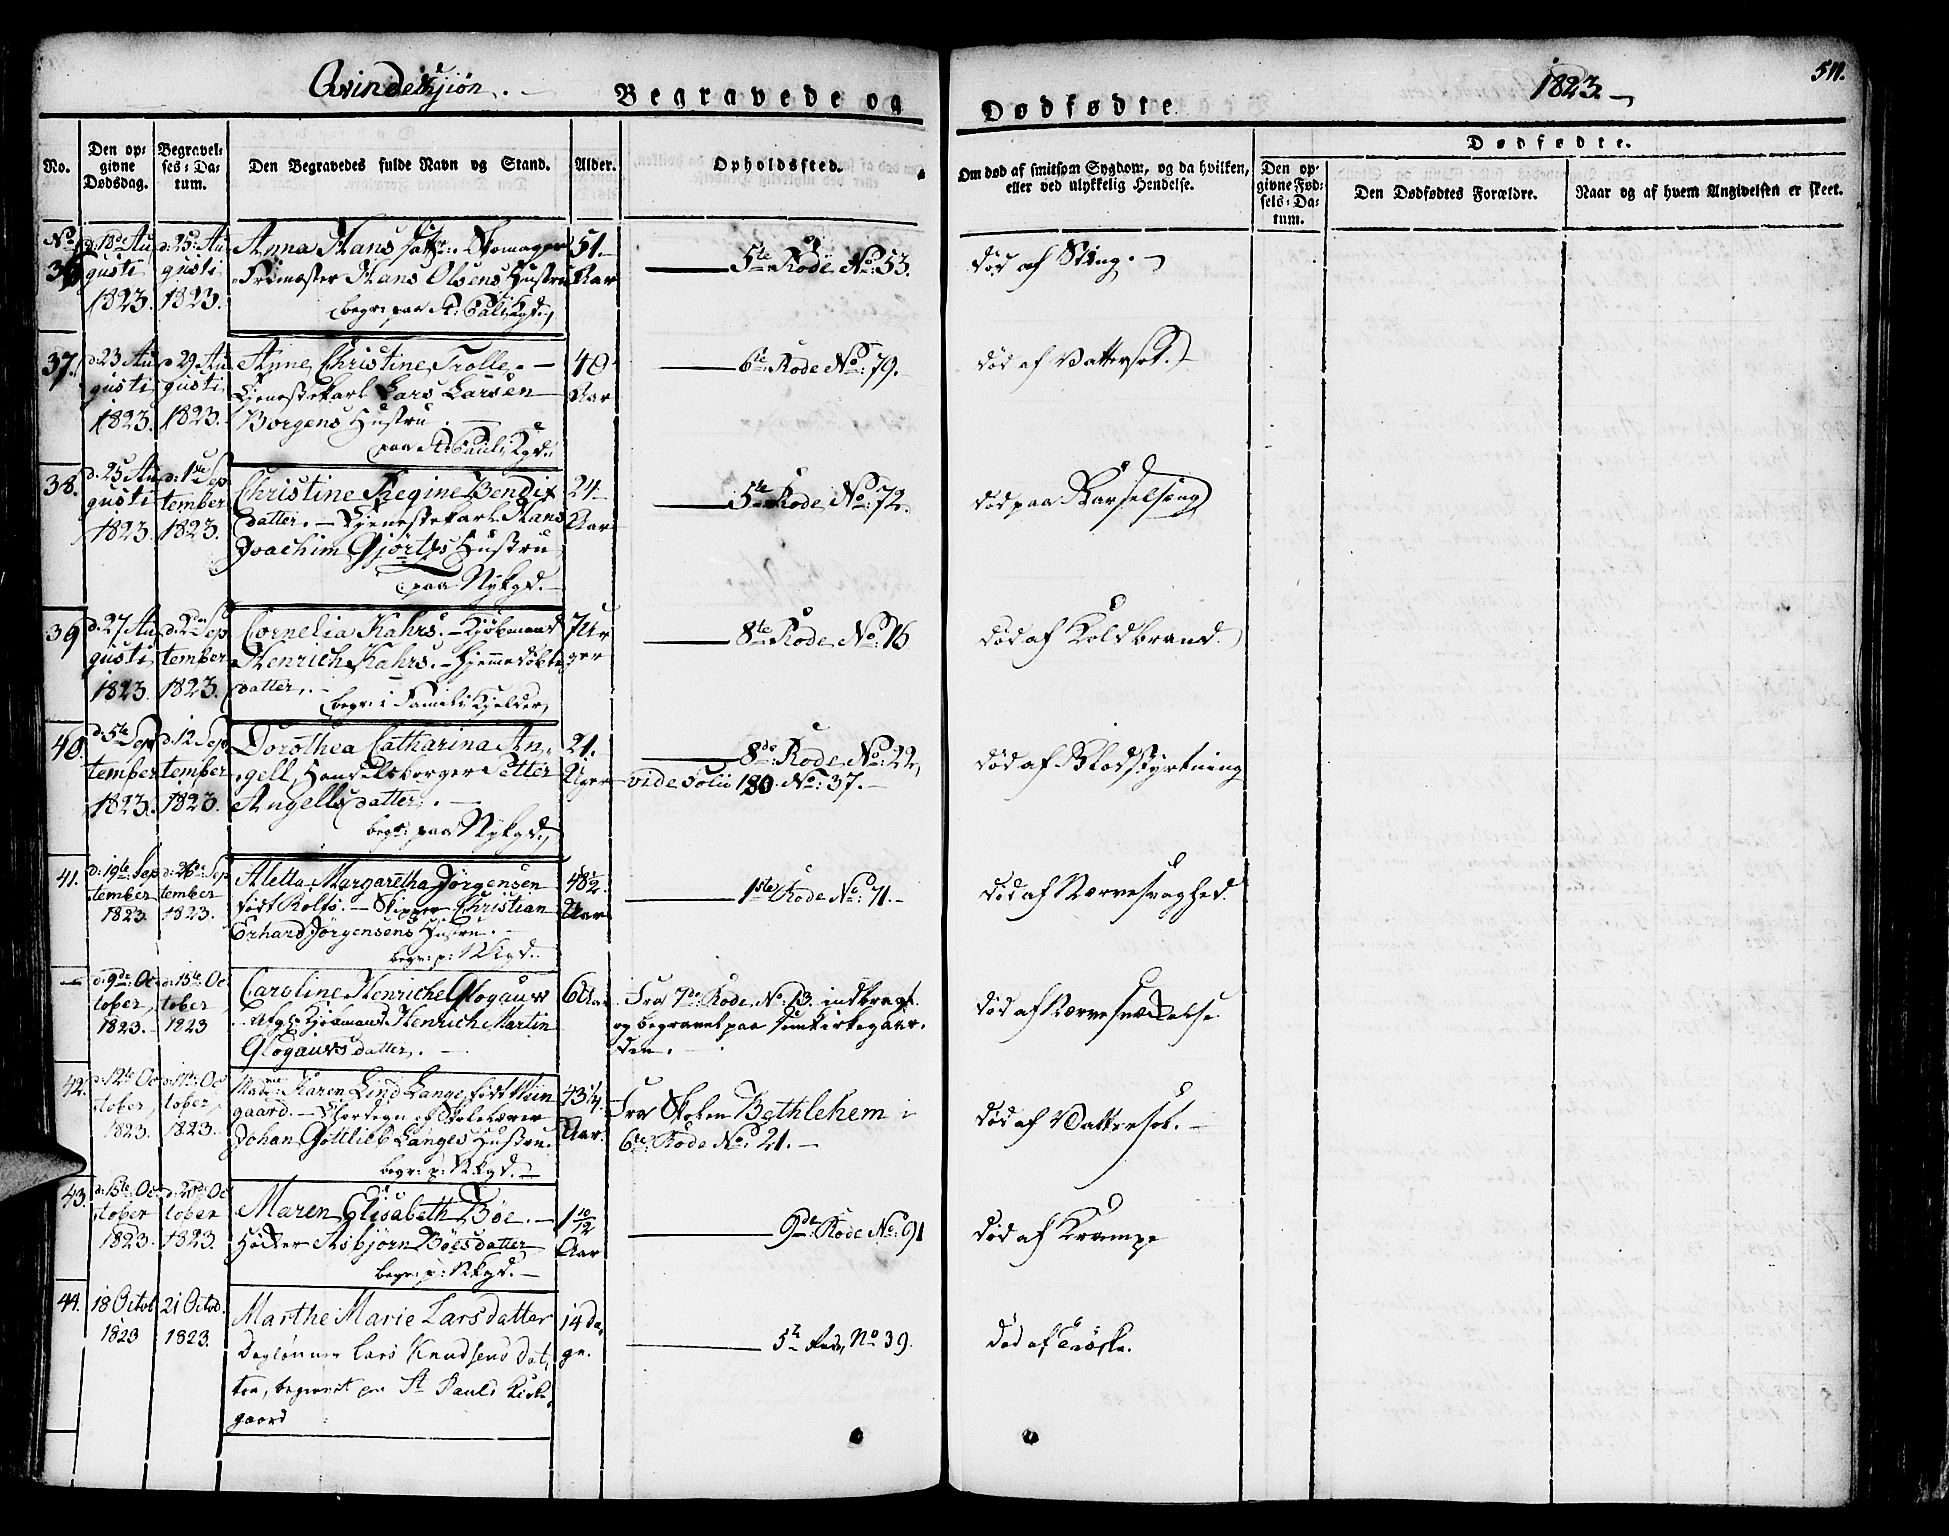 Qvindekjøn.
Begravede og
Dødfødte
1823.
511.
No.
Den opgivne Dødsdag.
Begravelses-Datum.
Den Begravedes fulde Navn og Stand.
Alder.
Opholdssted.
Om død af smitsom Sygdom, og da hvilken, eller ved ulykkelig Hendelse.
Dødfødte.
Den opgivne Fødsels-Datum.
Den Dødfødtes Forældre.
Naar og af hvem Angivelsen er skeet.
No 36
d: 18de Augusti 1823.
d: 25 Augusti 1823.
Anna Hans datter. Skomager
Frimester Hans Olsens Hustru
begr: paa St: Pauli Kgd:
51. Aar
5te Rode No: 53.
død af Sting.
37.
d: 23 Augusti 1823.
d: 29 Augusti 1823.
Anne Christine Trolle. -
Tjenestekarl Lars Larsen
Borgens Hustru
paa St: Pauli Kgd:
40 Aar
6te Rode No: 79.
død af Vattersot.
38.
d: 25 Augusti 1823.
d: 1ste September 1823.
Christine Regine Bendix
datter. - Tjenestekarl Hans
Joachim Gjörtys Hustru
paa Nykgd. -
24 Aar
5te Rode No: 72.
død paa Barselseng
39
d: 27 Augusti 1823.
d: 2den September 1823.
Cornelia Kahrs. - Kjøbmand
Henrich Kahrs. - Hjemmedøbte
datter. -
begr: i Famili Kjelder
7 Uger
8te Rode No: 16
død af Koldbrand.
40.
d: 5te September 1823.
d: 12 September 1823.
Dorothea Catharina An-
gell, Handelsborger Petter
Angells datter. -
begr: paa Nykgd:
21. Uger
8de Rode No: 22,
vide Folii 180. No: 37. -
død af Blodstyrtning
41.
d: 19te September 1823
d: 26de September 1823.
Aletta Margaretha Jörgensen
født Rolfs. - Skipper Christian
Erhard Jörgensens Hustru. -
begr: p: NKgd.
48½ Aar
1ste Rode No: 71. -
død af Nærvesvaghed.
-
d: 9de October 1823. -
d: 15te October 1823
Caroline Henriche Glogauw
Afg: Kjøbmand Henrich Martin
Glogauws datter. -
6 Aar
Fra 7de Rode, No: 13. indbragt
og begravet paa Domkirkegaar-
den. -
død af
42.
d: 12te October 1823.
d: 17de October 1823.
Madme: Karen Lind Lange, født Wiin
gaard. - Klokker og Skolelærer
Johan Gottlieb Langes Hustru.
begr: p: NKgd. -
43¼. Aar.
Fra Skolen Bethlehem i
6te Rode No: 21. -
død af Vattersot. -
43.
d: 15te October 1823
d: 20de October 1823.
Maren Elisabeth Böe. -
Høker Asbjörn Böes datter
begr: p: NKgd. -
1 10/12 Aar
9de Rode No: 91
død af Krampe
44.
18 Octob 1823
21 Octob. 1823.
Marthe Marie Larsdatter
Dagløнner Lars Knudsens dat-
ter, begravet paa St Pauls Kirke-
gaard
14 Dage.
5te Rode, No 39.
død af Trøske.